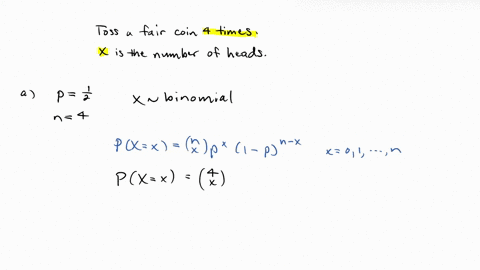 Toss a fair coin 4 times.
X is the number of heads.
a) p = 1/2 X ~ binomial
n = 4
P(X = x) = (n x) p^x (1 - p)^{n-x} x = 0, 1, ..., n
P(X = x) = (4 x)